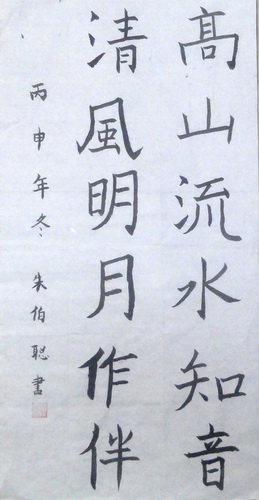 高山流水知音
清風明月作伴
丙申年冬 朱伯聪書